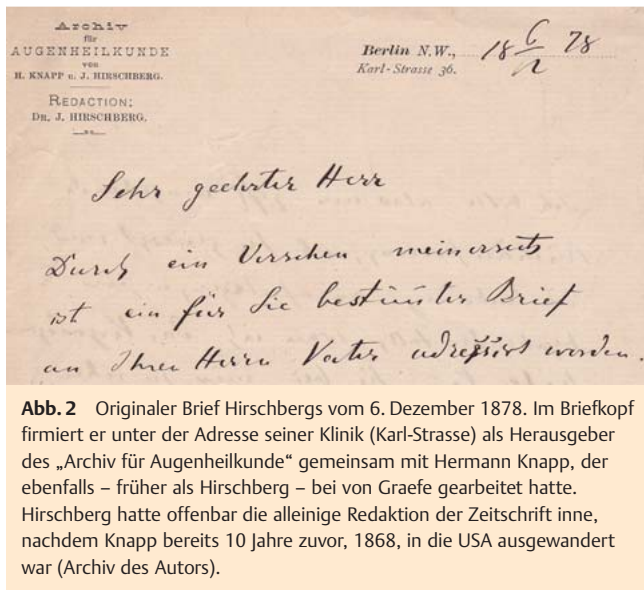 Archiv
für
AUGENHEILKUNDE
von
H. KNAPP u. J. HIRSCHBERG.
REDACTION:
DR. J. HIRSCHBERG.
Berlin N.W., 18 6/12 78
Karl-Strasse 36.
Sehr geehrter Herr
Durch ein Versehen meinerseits
ist ein für Sie bestimter Brief
an Ihren Herrn Vater adressirt worden.
Abb. 2 Originaler Brief Hirschbergs vom 6. Dezember 1878. Im Briefkopf
firmiert er unter der Adresse seiner Klinik (Karl-Strasse) als Herausgeber
des „Archiv für Augenheilkunde“ gemeinsam mit Hermann Knapp, der
ebenfalls – früher als Hirschberg – bei von Graefe gearbeitet hatte.
Hirschberg hatte offenbar die alleinige Redaktion der Zeitschrift inne,
nachdem Knapp bereits 10 Jahre zuvor, 1868, in die USA ausgewandert
war (Archiv des Autors).